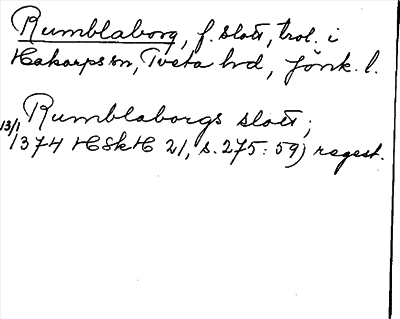 Rumblaborg, f. slott, trol. i
Hakarps sn, Tveta hd, Jönk. l.
Rumblaborgs slott;
13/1 1374 HSkH 21, s. 275: 59) regest.